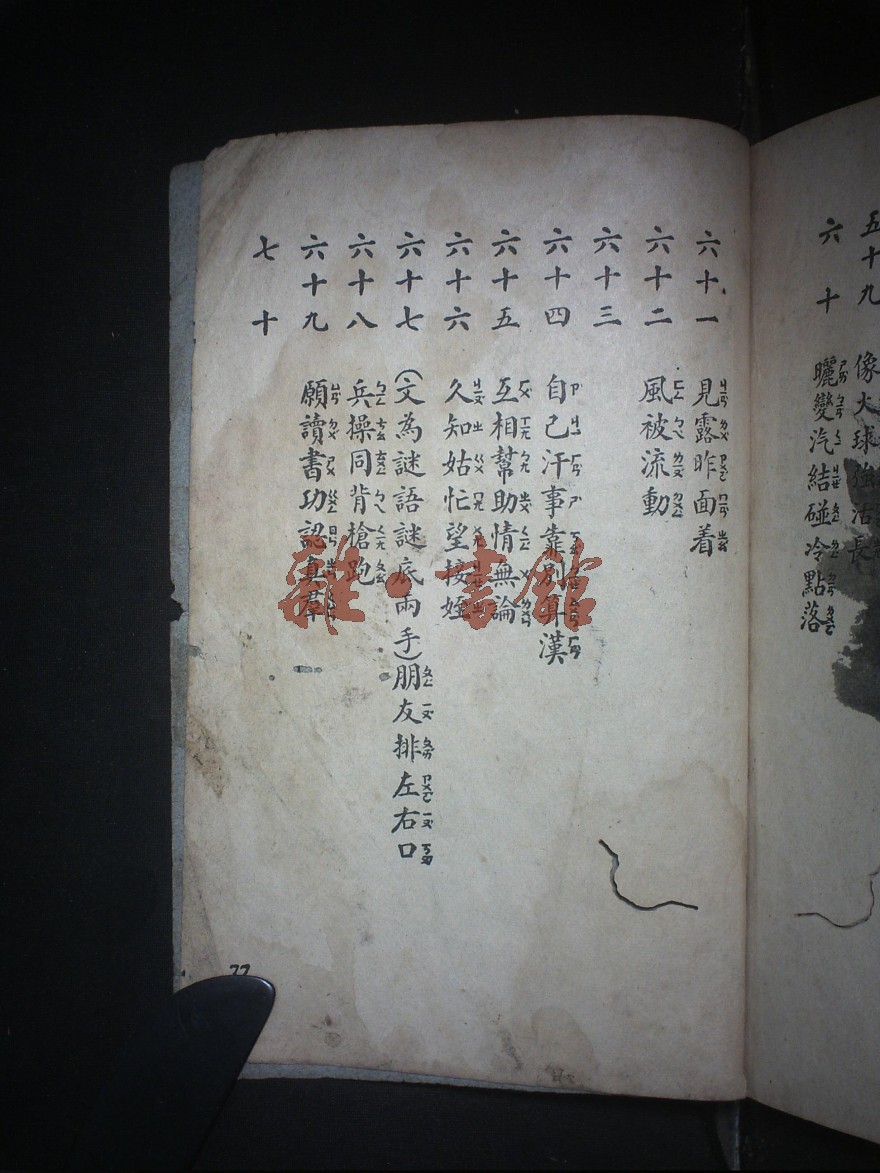 五十九 像火球強活長
六十 曬變汽結碰冷點落
六十一 見露昨面着
六十二 風被流動
六十三
六十四 自己汗事靠別算漢
六十五 互相幫助情無論
六十六 久知姑忙望接姪
六十七 (文為謎語謎底兩手)朋友排左右口
六十八 兵操同背槍跑
六十九 願讀書功認真羣
七十
77
雜·書館